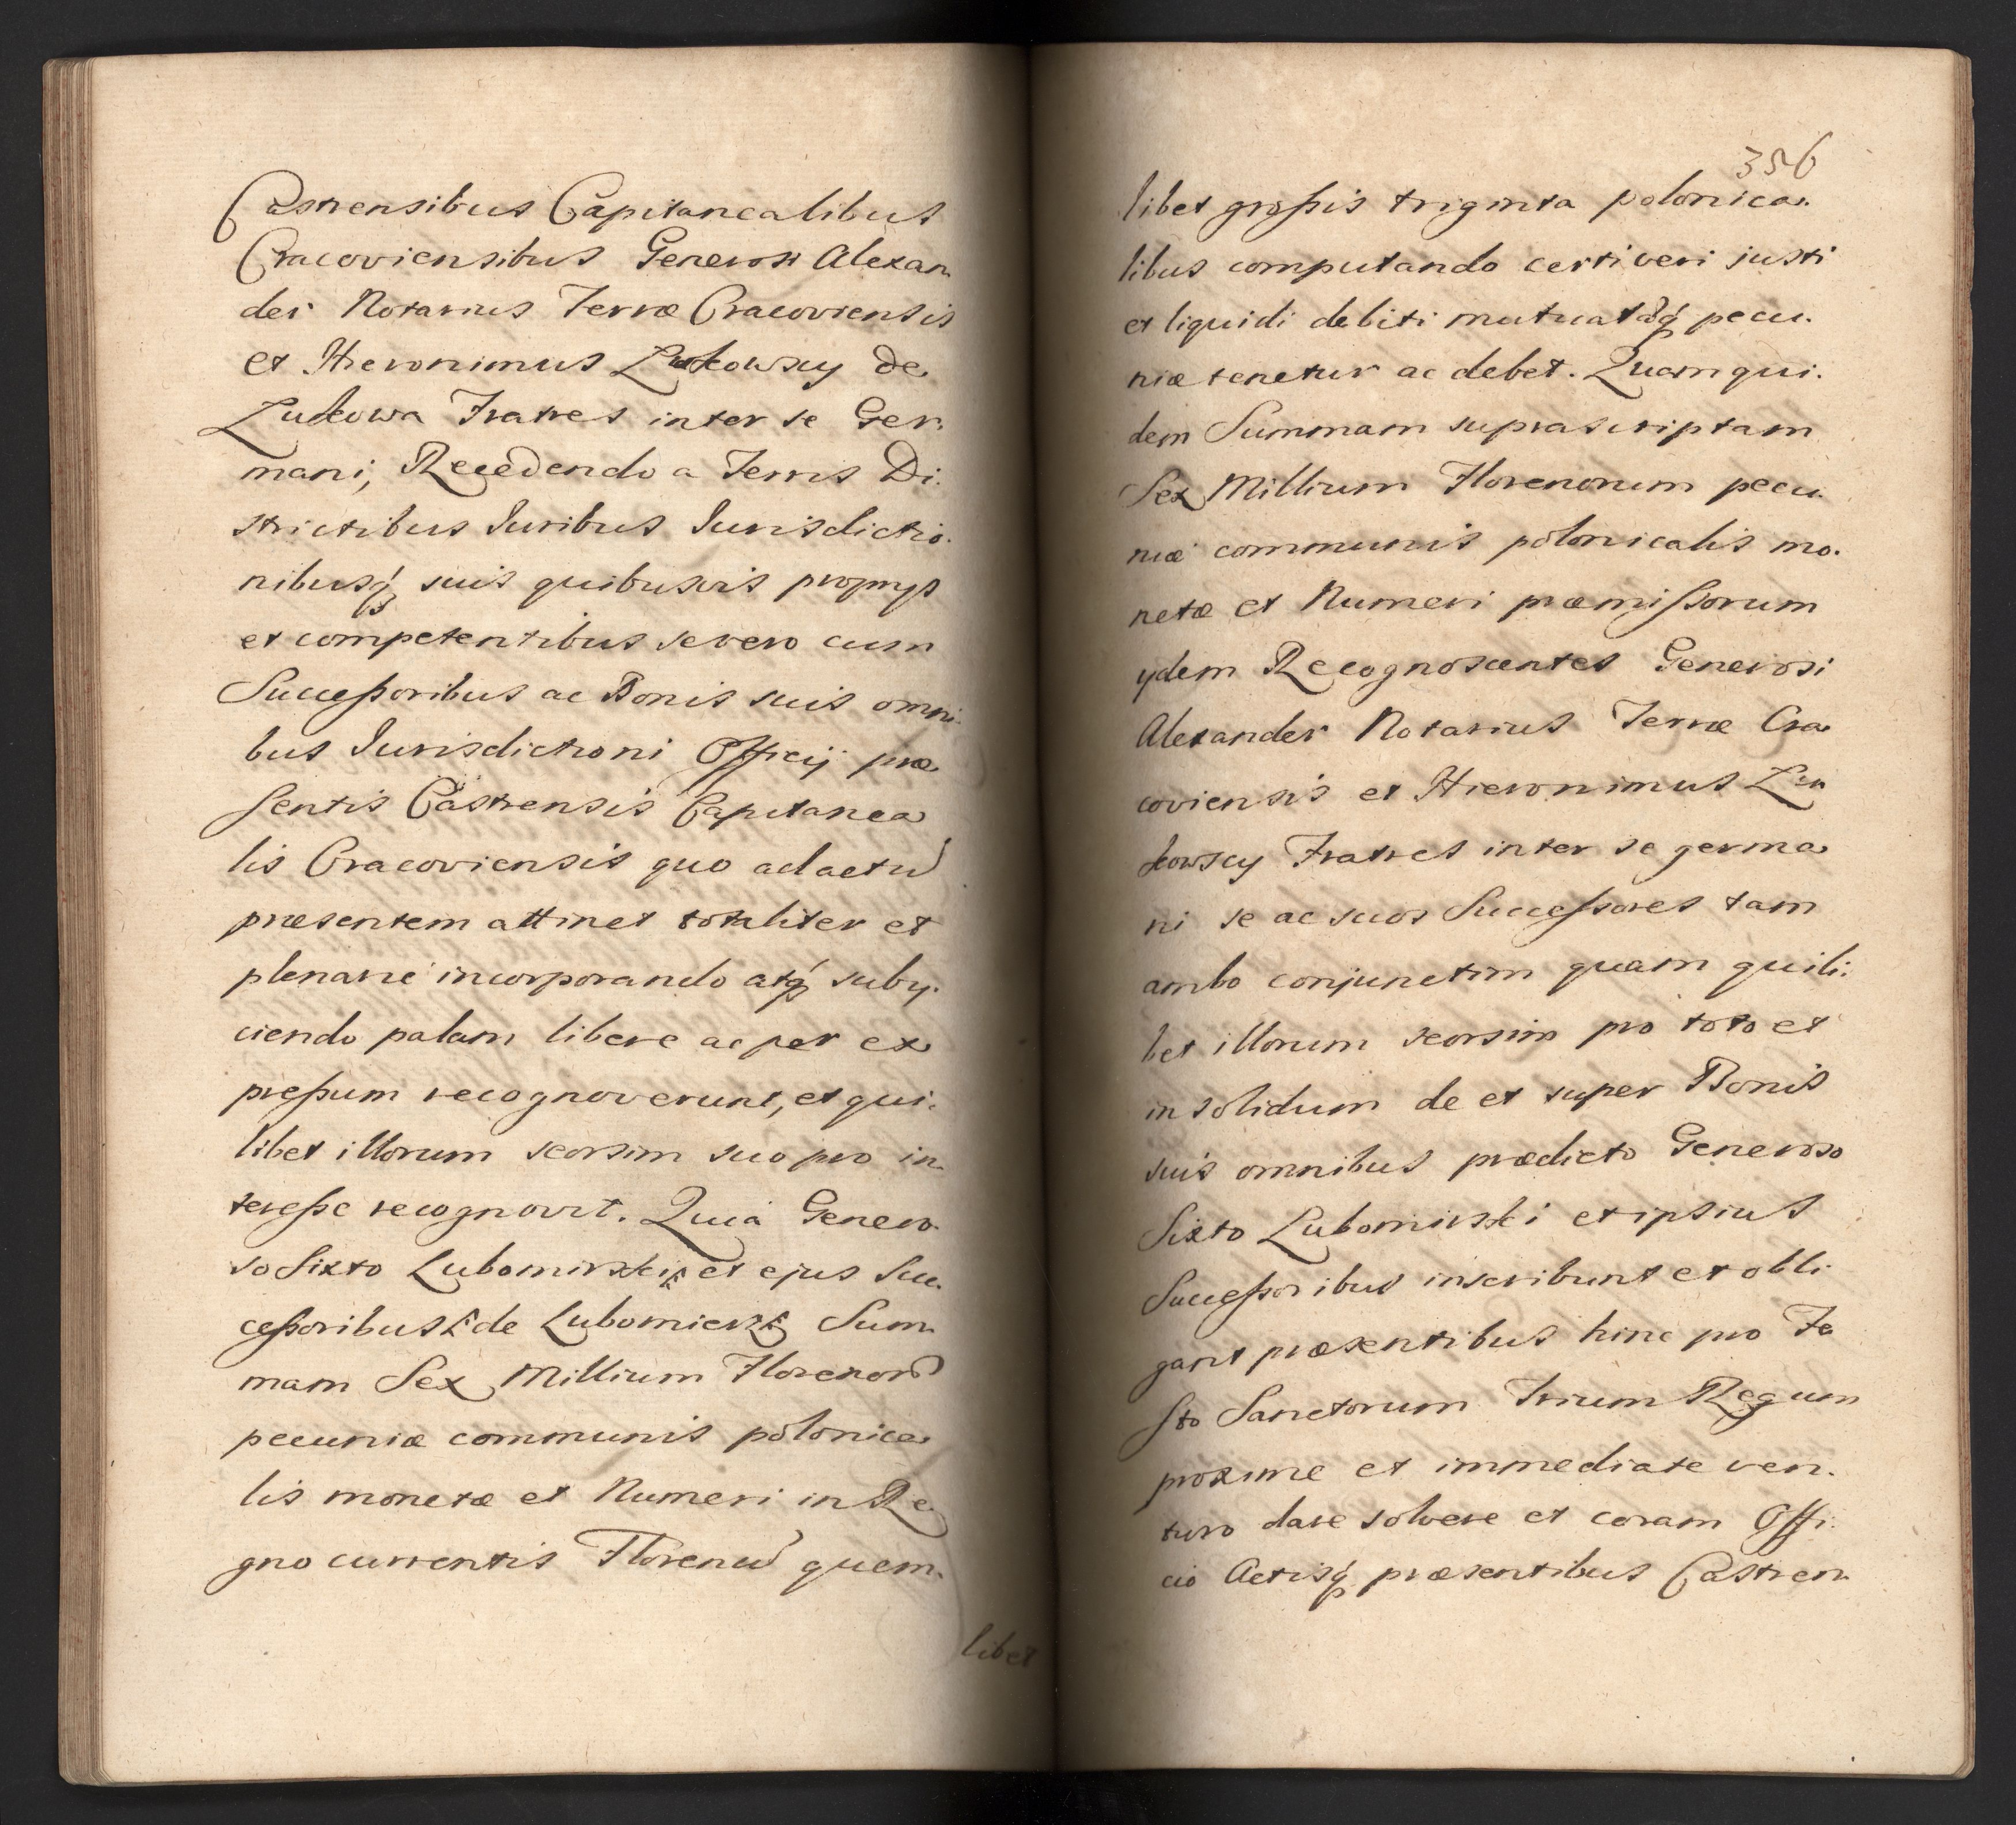 Castrensibus Capitanealibus
Cracoviensibus Generosi Alexan
der Notarius Terræ Cracoviensis
et Hieronimus Lukowscy de
Lukowa Fratres inter se Ger.
mani, Recedendo a Terris Di.
strictibus Iuribus Iurisdictio.
nibusq́ suis quibusvis proprys
et competentibus se vero cum
Succeßoribus ac Bonis suis omni.
bus Iurisdictioni Officÿ præ
sentis Castrensis Capitanea
lis Cracoviensis quo ad actū
præsentem attinet totaliter et
plenarie incorporando atq́ suby.
ciendo palam libere ac per ex
preßum recognoverunt, et qui.
libet illorum seorsim suo pro in.
tereße recognovit. Quia Genero.
so Sixto Lubomirski et ejus Suc.
ceßoribus de Lubomierz Sum.
mam Sex Millium Florenorū
pecuniæ communis polonica
lis monetæ et Numeri in Re.
gno currentis Florenū quem.
libet
356
libet großis triginta polonica.
libus computando certi veri justi
et liquidi debiti mutuatæq́ pecu.
niæ tenetur ac debet. Quam qui.
dem Summam suprascriptam
Sex Millium Florenorum pecu.
niæ communis polonicalis mo.
netæ et Numeri præmißorum
ydem Recognoscentes Generosi
Alexander Notarius Terræ Cra
coviensis et Hieronimus Lu
kowscy Fratres inter se germa
ni se ac suos Succeßores tam
ambo conjunctim quam quili:
bet illorum seorsim pro toto et
in solidum de et super Bonis
suis omnibus prædicto Generoso
Sixto Lubomirski et ipsius
Succeßoribus inscribunt et obli
gant præsentibus hinc pro Fe
sto Sanctorum Trium Regum
proxime et immediate ven.
turo dare solvere et coram Offi.
cio Actisq́ præsentibus Castren.